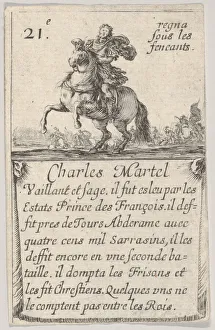 21.e
regna
sous les
feneants.
Charles Martel
Vaillant et sage, il fut esleu par les
Estats Prince des François. il def-
fit pres de Tours Abderame avec
quatre cens mil Sarrasins, il les
deffit encore en vne seconde ba-
taille, il dompta les Frisons et
les fit Chrestiens. Quelques vns ne
le comptent pas entre les Rois.